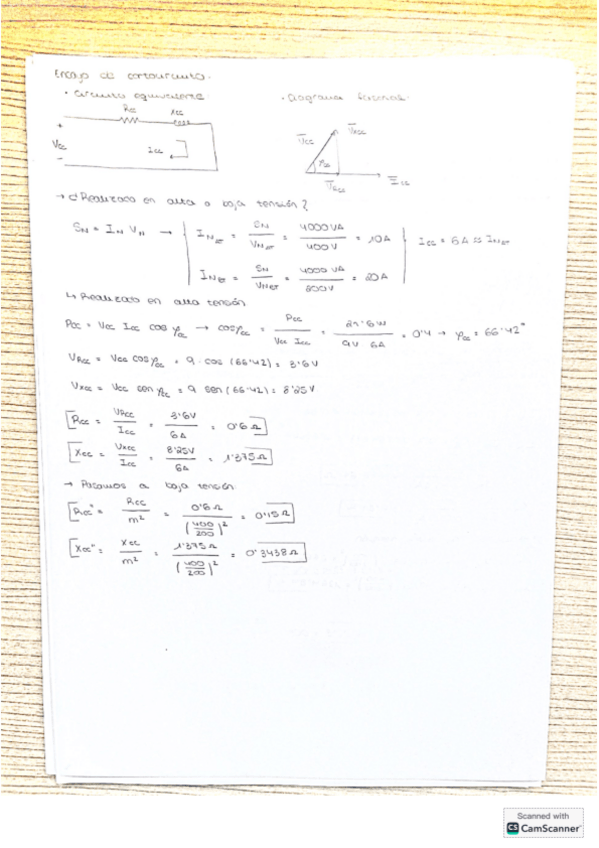 Ensayo de cortocircuito.
· Circuito equivalente:
· Diagrama fasorial:
Rcc Xcc
+
Vcc
-
Icc
V̄cc V̄Xcc
φcc
V̄Rcc
Īcc
→ ¿Realizado en alta o baja tensión?
SN = IN VN → I N1T = SN / VN1T = 4000 VA / 400 V = 10 A
Icc = 6A ≈ I N1T
I N2T = SN / VN2T = 4000 VA / 200 V = 20 A
↳ Realizado en alta tensión
Pcc = Vcc Icc cos φcc → cos φcc = Pcc / Vcc Icc = 21'6 W / 9V 6A = 0'4 → φcc = 66'42°
VRcc = Vcc cos φcc = 9 · cos (66'42) = 3'6 V
VXcc = Vcc sen φcc = 9 sen (66'42) = 8'25 V
Rcc = VRcc / Icc = 3'6V / 6A = 0'6 Ω
Xcc = VXcc / Icc = 8'25V / 6A = 1'375 Ω
→ Pasamos a baja tensión
Rcc'' = Rcc / m² = 0'6 Ω / (400/200)² = 0'15 Ω
Xcc'' = Xcc / m² = 1'375 Ω / (400/200)² = 0'3438 Ω
Scanned with
CS CamScanner